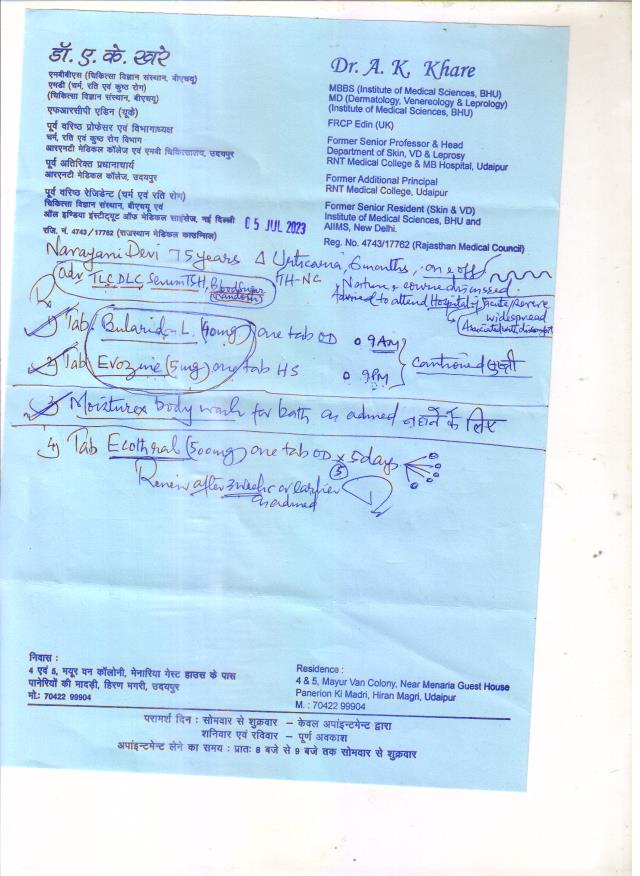 डॉ. ए. के. खरे
एमबीबीएस (चिकित्सा विज्ञान संस्थान, बीएचयू)
एमडी (चर्म, रति एवं कुष्ठ रोग)
(चिकित्सा विज्ञान संस्थान, बीएचयू)
एफआरसीपी एडिन (यूके)
पूर्व वरिष्ठ प्रोफेसर एवं विभागाध्यक्ष
चर्म, रति एवं कुष्ठ रोग विभाग
आरएनटी मेडिकल कॉलेज एवं एमबी चिकित्सालय, उदयपुर
पूर्व अतिरिक्त प्रधानाचार्य
आरएनटी मेडिकल कॉलेज, उदयपुर
पूर्व वरिष्ठ रेजिडेन्ट (चर्म एवं रति रोग)
चिकित्सा विज्ञान संस्थान, बीएचयू एवं
ऑल इण्डिया इंस्टीट्यूट ऑफ मेडिकल साइंसेज, नई दिल्ली
रजि. नं. 4743/17762 (राजस्थान मेडिकल काउन्सिल)
05 JUL 2023
Dr. A. K. Khare
MBBS (Institute of Medical Sciences, BHU)
MD (Dermatology, Venereology & Leprology)
(Institute of Medical Sciences, BHU)
FRCP Edin (UK)
Former Senior Professor & Head
Department of Skin, VD & Leprosy
RNT Medical College & MB Hospital, Udaipur
Former Additional Principal
RNT Medical College, Udaipur
Former Senior Resident (Skin & VD)
Institute of Medical Sciences, BHU and
AIIMS, New Delhi.
Reg. No. 4743/17762 (Rajasthan Medical Council)
Narayani Devi 75 years Δ Urticaria, 6 months, on & off
Adv TLC DLC, Serum TSH, Blood Sugar Random
TH-NC
Nature & course discussed.
Advised to attend Hospital if acute/severe
widespread
Associated with discomfort
1) Tab. (40mg) one tab OD 9AM
2) Tab (5mg) one tab HS 9PM
cautioned
3) Moisturex body wash for bath as advised नहाने के लिए
4) Tab (500mg) one tab OD x 5 days
5
Review after 3 weeks or earlier
as advised
निवास :
4 एवं 5, मयूर वन कॉलोनी, मेनारिया गेस्ट हाउस के पास
पानेरियों की मादड़ी, हिरण मगरी, उदयपुर
मो.: 70422 99904
Residence :
4 & 5, Mayur Van Colony, Near Menaria Guest House
Panerion Ki Madri, Hiran Magri, Udaipur
M. : 70422 99904
परामर्श दिन : सोमवार से शुक्रवार – केवल अपांइन्टमेन्ट द्वारा
शनिवार एवं रविवार – पूर्ण अवकाश
अपांइन्टमेन्ट लेने का समय : प्रातः 8 बजे से 9 बजे तक सोमवार से शुक्रवार